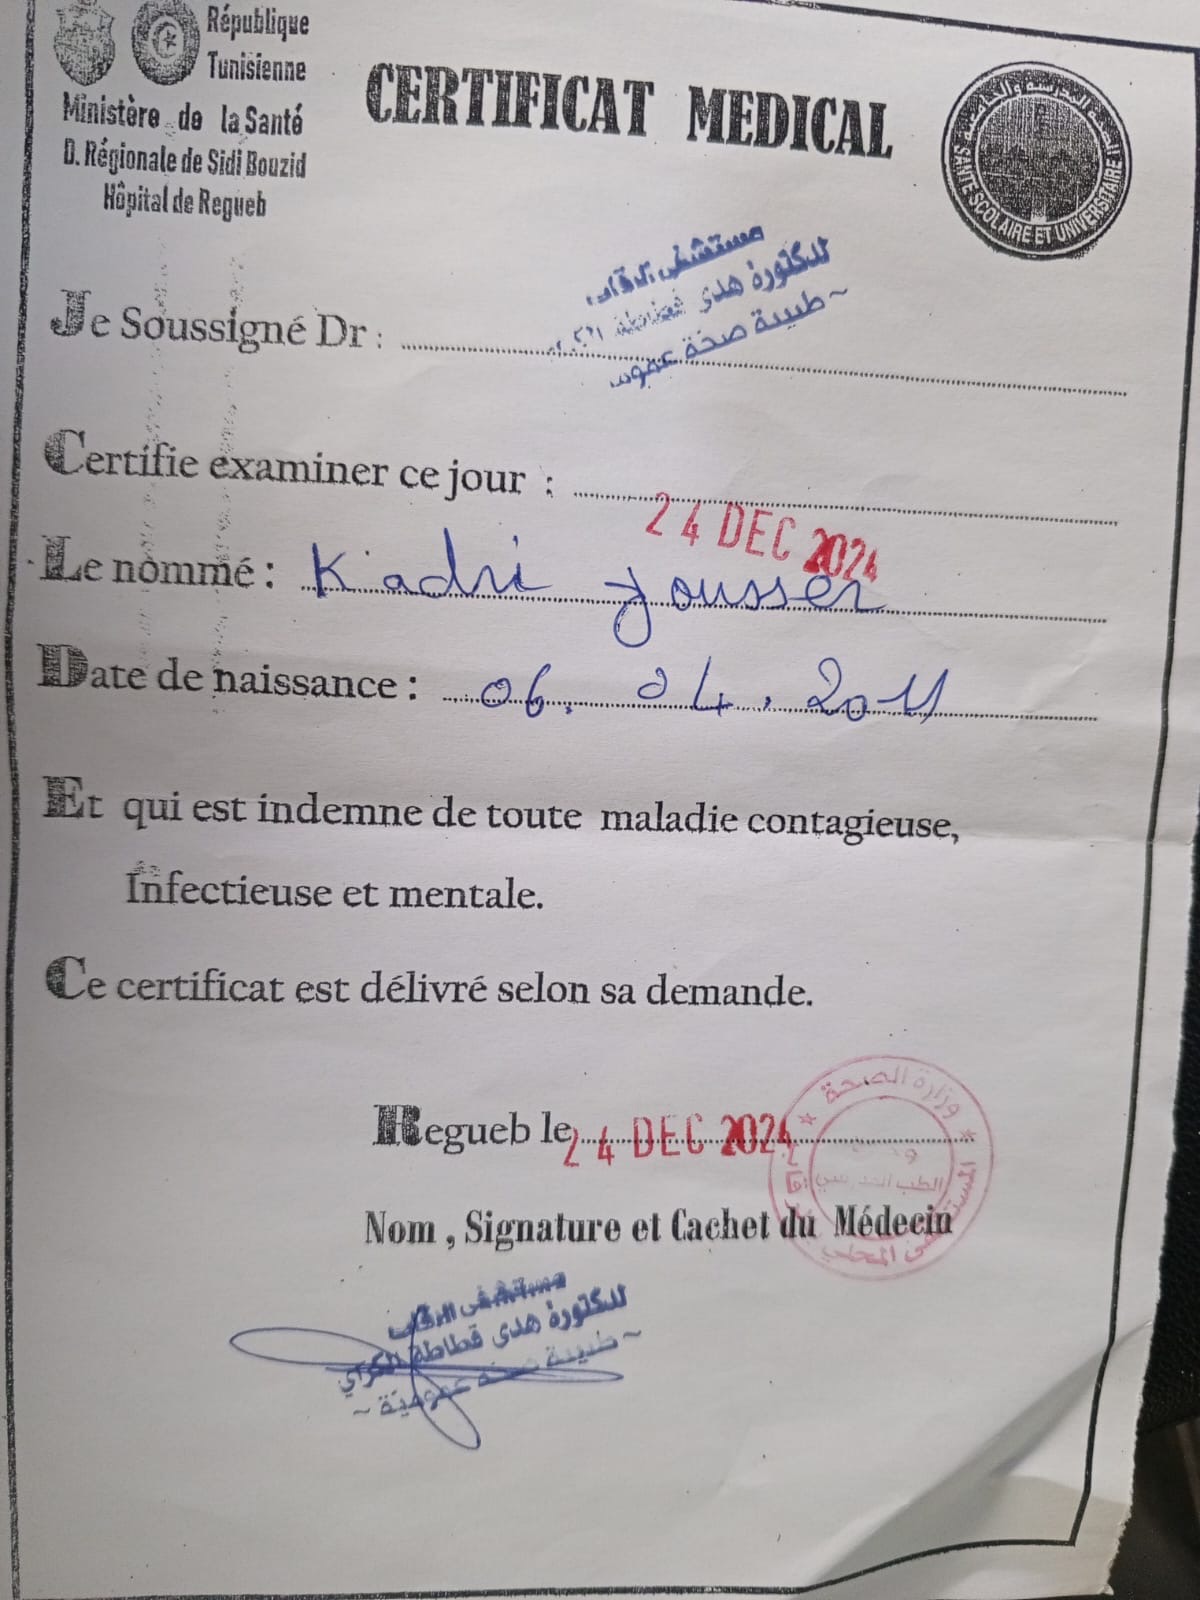 République
Tunisienne
Ministère de la Santé
D. Régionale de Sidi Bouzid
Hôpital de Regueb
CERTIFICAT MEDICAL
SANTÉ SCOLAIRE ET UNIVERSITAIRE
مستشفى الرقاب
الدكتورة هدى قطاطة
طبيبة صحة
Je Soussigné Dr :
Certifie examiner ce jour :
24 DEC 2024
Le nommé : Kadri Yousser
Date de naissance : 06. 04. 2011
Et qui est indemne de toute maladie contagieuse,
Infectieuse et mentale.
Ce certificat est délivré selon sa demande.
Regueb le 24 DEC 2024
وزارة الصحة
الطب المدرسي
Nom , Signature et Cachet du Médecin
مستشفى الرقاب
الدكتورة هدى قطاطة الكراي
~ طبيبة صحة عمومية ~